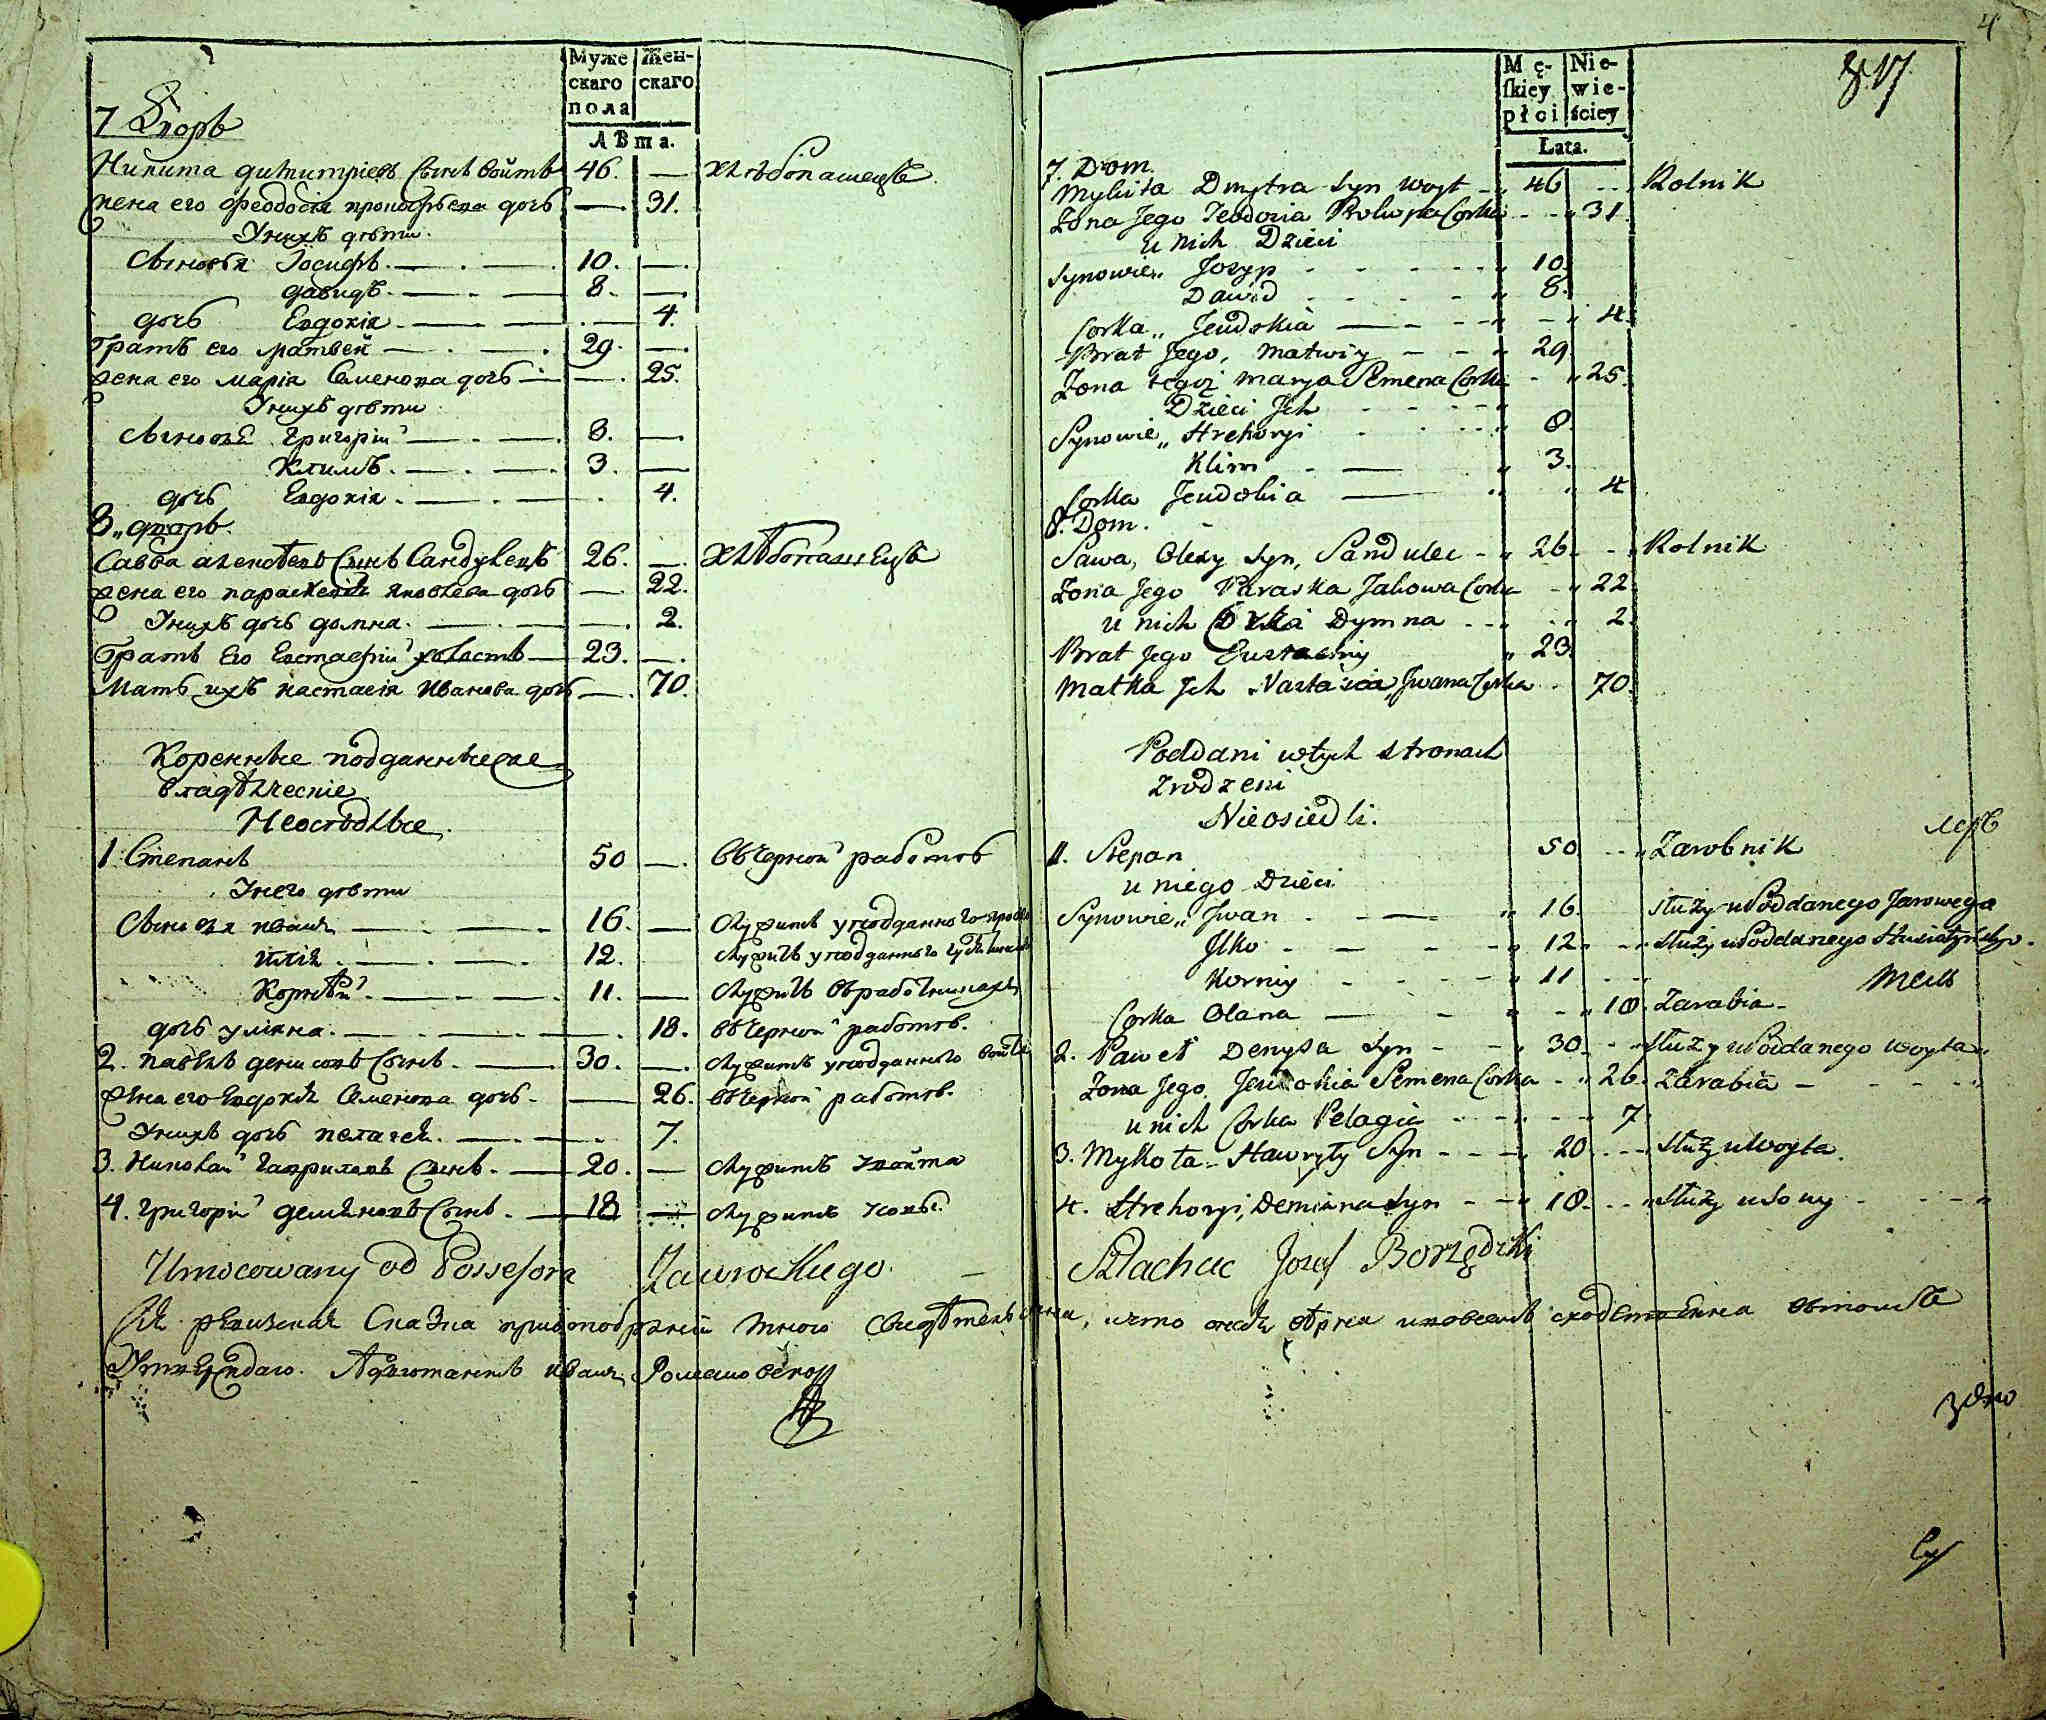 Муже
скаго
пола
Жен-
скаго
Лѣта.
7 Дворъ
Никита Димитріевъ Сынъ войтъ 46. — хлѣбопашецъ
жена его Феодосія Прокофѣева дочь — 31.
У нихъ дѣти.
Сыновья Іосифъ. — 10. —
Давидъ. — 8. —
дочь Евдокія — 4.
Братъ его Матвей — 29. —
жена его Марія Семенова дочь — 25.
У нихъ дѣти
Сыновья Григорій — 8. —
Климъ. — 3. —
дочь Евдокія. — 4.
8. дворъ.
Савва Алексѣевъ Сынъ Сандулецъ 26. — хлѣбопашецъ
жена его Параскевія Яковлева дочь — 22.
У нихъ дочь Домна. — 2.
Братъ Его Евстафій холостъ — 23. —
Мать ихъ Настасія Иванова дочь — 70.
Коренные подданные
владѣлческіе
Неоседлые.
1. Степанъ 50 — въ черной работѣ
У него дѣти
Сыновья Иванъ — 16. — служитъ у подданного
Илія — 12. служитъ у подданного
Корнѣй. — 11. — служитъ въ работникахъ
дочь Уліяна. — 18. въ черной работѣ.
2. Павелъ Денисовъ Сынъ. — 30. — служитъ у подданного войта
жена его Евдокія Семенова дочь — 26. въ черной работѣ.
У нихъ дочь Пелагея. — 7.
3. Николай Гавриловъ Сынъ. — 20. — служитъ у войта
4. Григорій Демяновъ Сынъ. — 18 — служитъ
Umocowany od Possesora Zawrockiego. —
Сія ревизская Сказка при мною свидѣтельствована, что
Адютантъ Иванъ Романовскій
4
17
Mę-
skiey
płci
Nie-
wie-
ściey
Lata.
7. Dom.
Mykita Dmytra Syn woyt - 46 - - Rolnik
Zona Jego Teodozia Prokopa Corka - - 31.
u nich Dzieci
Synowie „ Jozyp - - 10.
Dawid - - 8.
Corka „ Jeudokia — - - 4.
Brat Jego, Matwiy - - 29
Zona tegoż Marya Semena Corka - 25.
Dzieci Jch
Synowie „ Hrehoryi - - 8.
Klim - — 3.
Corka Jeudokia — 4
8. Dom.
Sawa, Olexy Syn, Sandulec - 26. - - Rolnik
Zona Jego Paraska Jakowa Corka - 22.
u nich Corka Dymna - - 2.
Brat Jego Eustachiy 23.
Matka Jch Nastasia Jwana Corka - 70.
Poddani w tych stronach
zrodzeni
Nieosiedli.
1. Stepan 50 - - Zarobnik
u niego Dzieci
Synowie „ Jwan - — 16. służy u Poddanego Jarowego
Jlko - - 12. - - służy u Poddanego
Korniy - - 11 - -
Corka Olana — - - 18. Zarabia -
2. Paweł Denysa Syn - - 30. - - służy u Poddanego woyta
Zona Jego Jeudokia Semena Corka - 26. Zarabia -
u nich Corka Pelagia - - 7
3. Mykoła Hawryły Syn - - 20 - - służy u Woyta.
4. Hrehoryi, Demiana Syn - - 18. - - służy u
Szlachcic Jozef Borządzki